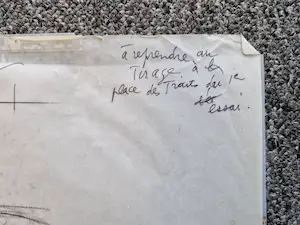 à reprendre au
Tirage à la
place des Traits que je
essai.